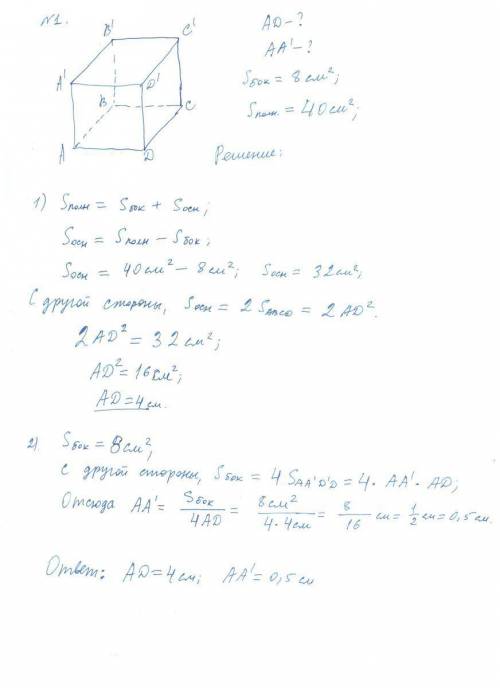 №1.
B' C'
A' D'
B C
A D
AD - ?
AA' - ?
Sбок = 8 см²;
Sполн = 40 см²;
Решение:
1) Sполн = Sбок + Sосн;
Sосн = Sполн - Sбок;
Sосн = 40 см² - 8 см²; Sосн = 32 см²;
С другой стороны, Sосн = 2 SABCD = 2 AD².
2 AD² = 32 см²;
AD² = 16 см²;
AD = 4 см.
2) Sбок = 8 см²,
с другой стороны, Sбок = 4 SAA'D'D = 4 · AA' · AD;
Отсюда AA' = Sбок / 4AD = 8 см² / 4·4 см = 8 / 16 см = 1/2 см = 0,5 см.
Ответ: AD = 4 см; AA' = 0,5 см